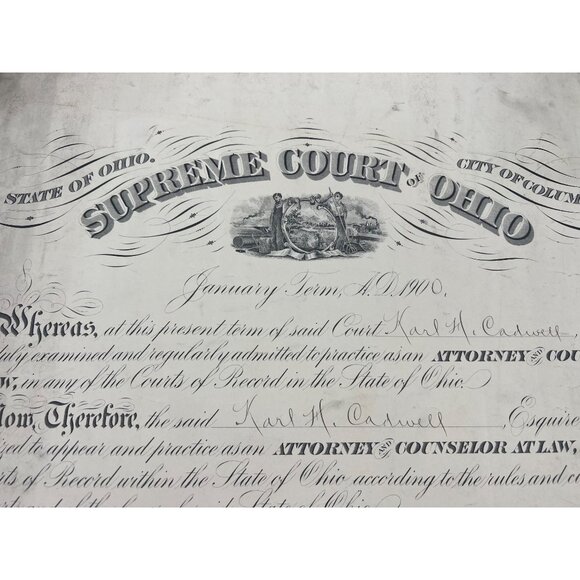 STATE OF OHIO.
SUPREME COURT OF OHIO
CITY OF COLUM
January Term, A.D. 1900.
Whereas, at this present term of said Court Karl H. Cadwell,
duly examined and regularly admitted to practice as an ATTORNEY AND COU
W, in any of the Courts of Record in the State of Ohio.
Now, Therefore, the said Karl H. Cadwell, Esquire
ized to appear and practice as an ATTORNEY AND COUNSELOR AT LAW,
rts of Record within the State of Ohio according to the rules and co
State of Ohio